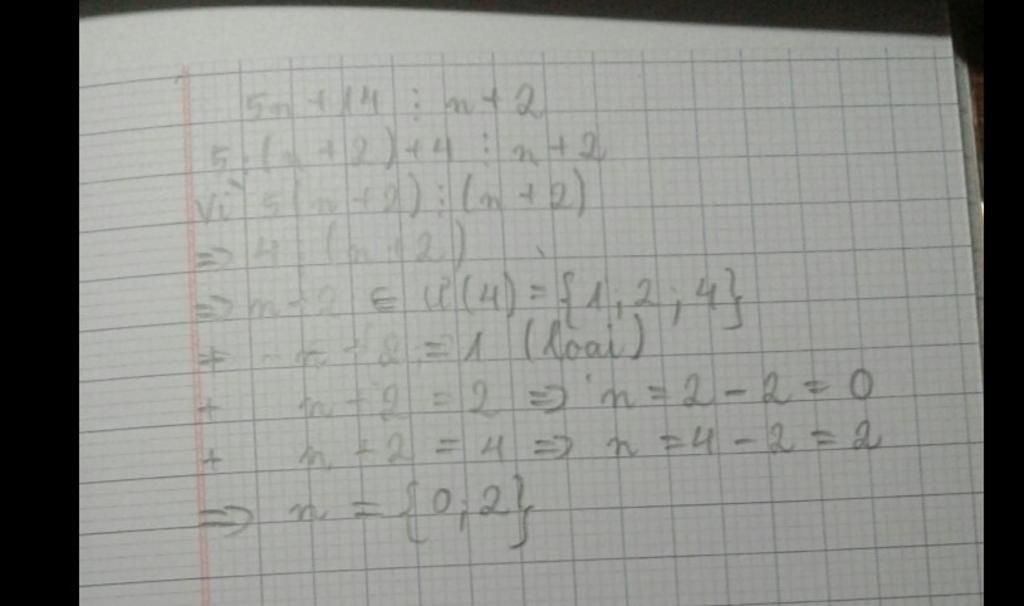 5n + 14 ⋮ n + 2
5.(n + 2) + 4 ⋮ n + 2
Vì 5(n + 2) ⋮ (n + 2)
=> 4 ⋮ (n + 2)
=> n + 2 ∈ Ư(4) = {1; 2; 4}
+ n + 2 = 1 (loại)
+ n + 2 = 2 => n = 2 - 2 = 0
+ n + 2 = 4 => n = 4 - 2 = 2
=> n = {0; 2}